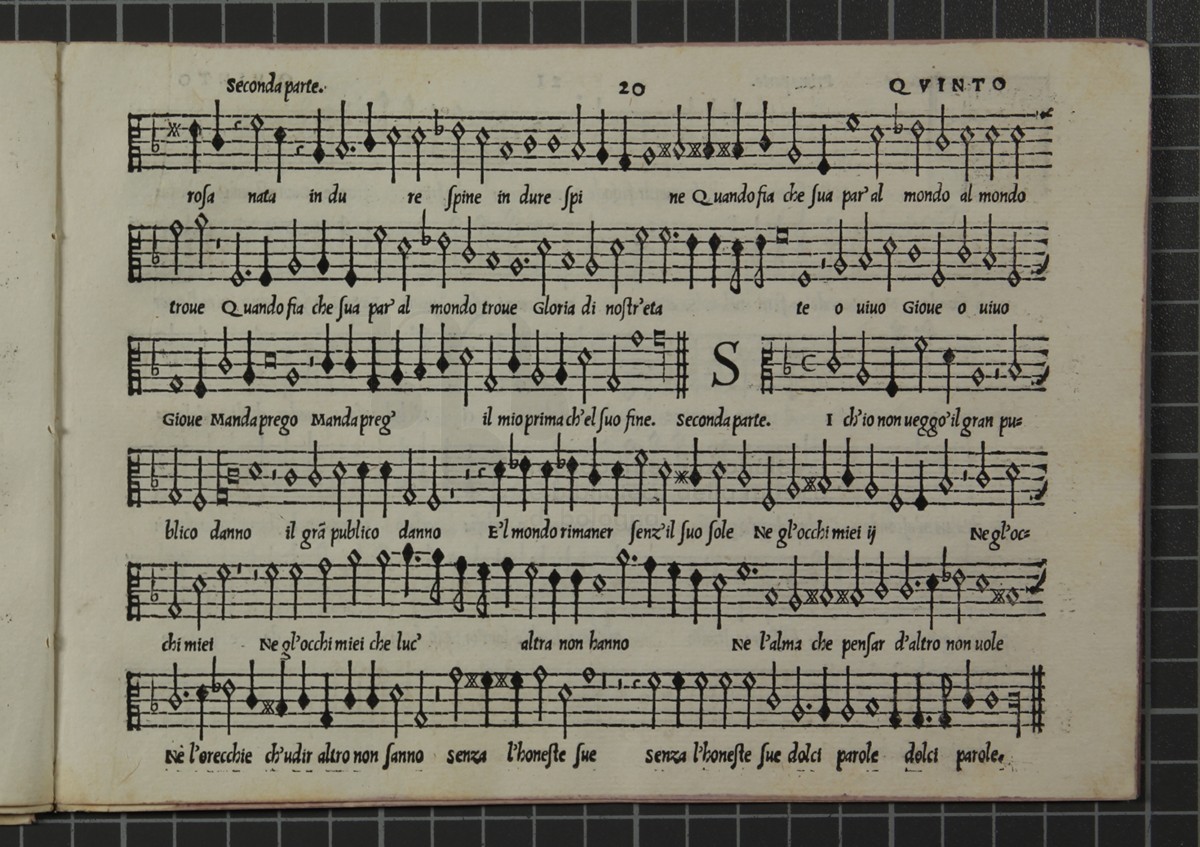 Seconda parte. 20 QVINTO
rosa nata in du re spine in dure spi ne Quando fia che sua par' al mondo al mondo
troue Quando fia che sua par' al mondo troue Gloria di nostr'eta te o uiuo Gioue o uiuo
Gioue Manda prego Manda preg' il mio prima ch'el suo fine. Seconda parte. S I ch'io non ueggo'il gran pu=
blico danno il grã publico danno E'l mondo rimaner senz'il suo sole Ne gl'occhi miei ij Ne gl'oc=
chi miei Ne gl'occhi miei che luc' altra non hanno Ne l'alma che pensar d'altro non uole
Ne l'orecchie ch'udir altro non sanno Senza l'honeste sue Senza l'honeste sue dolci parole dolci parole.